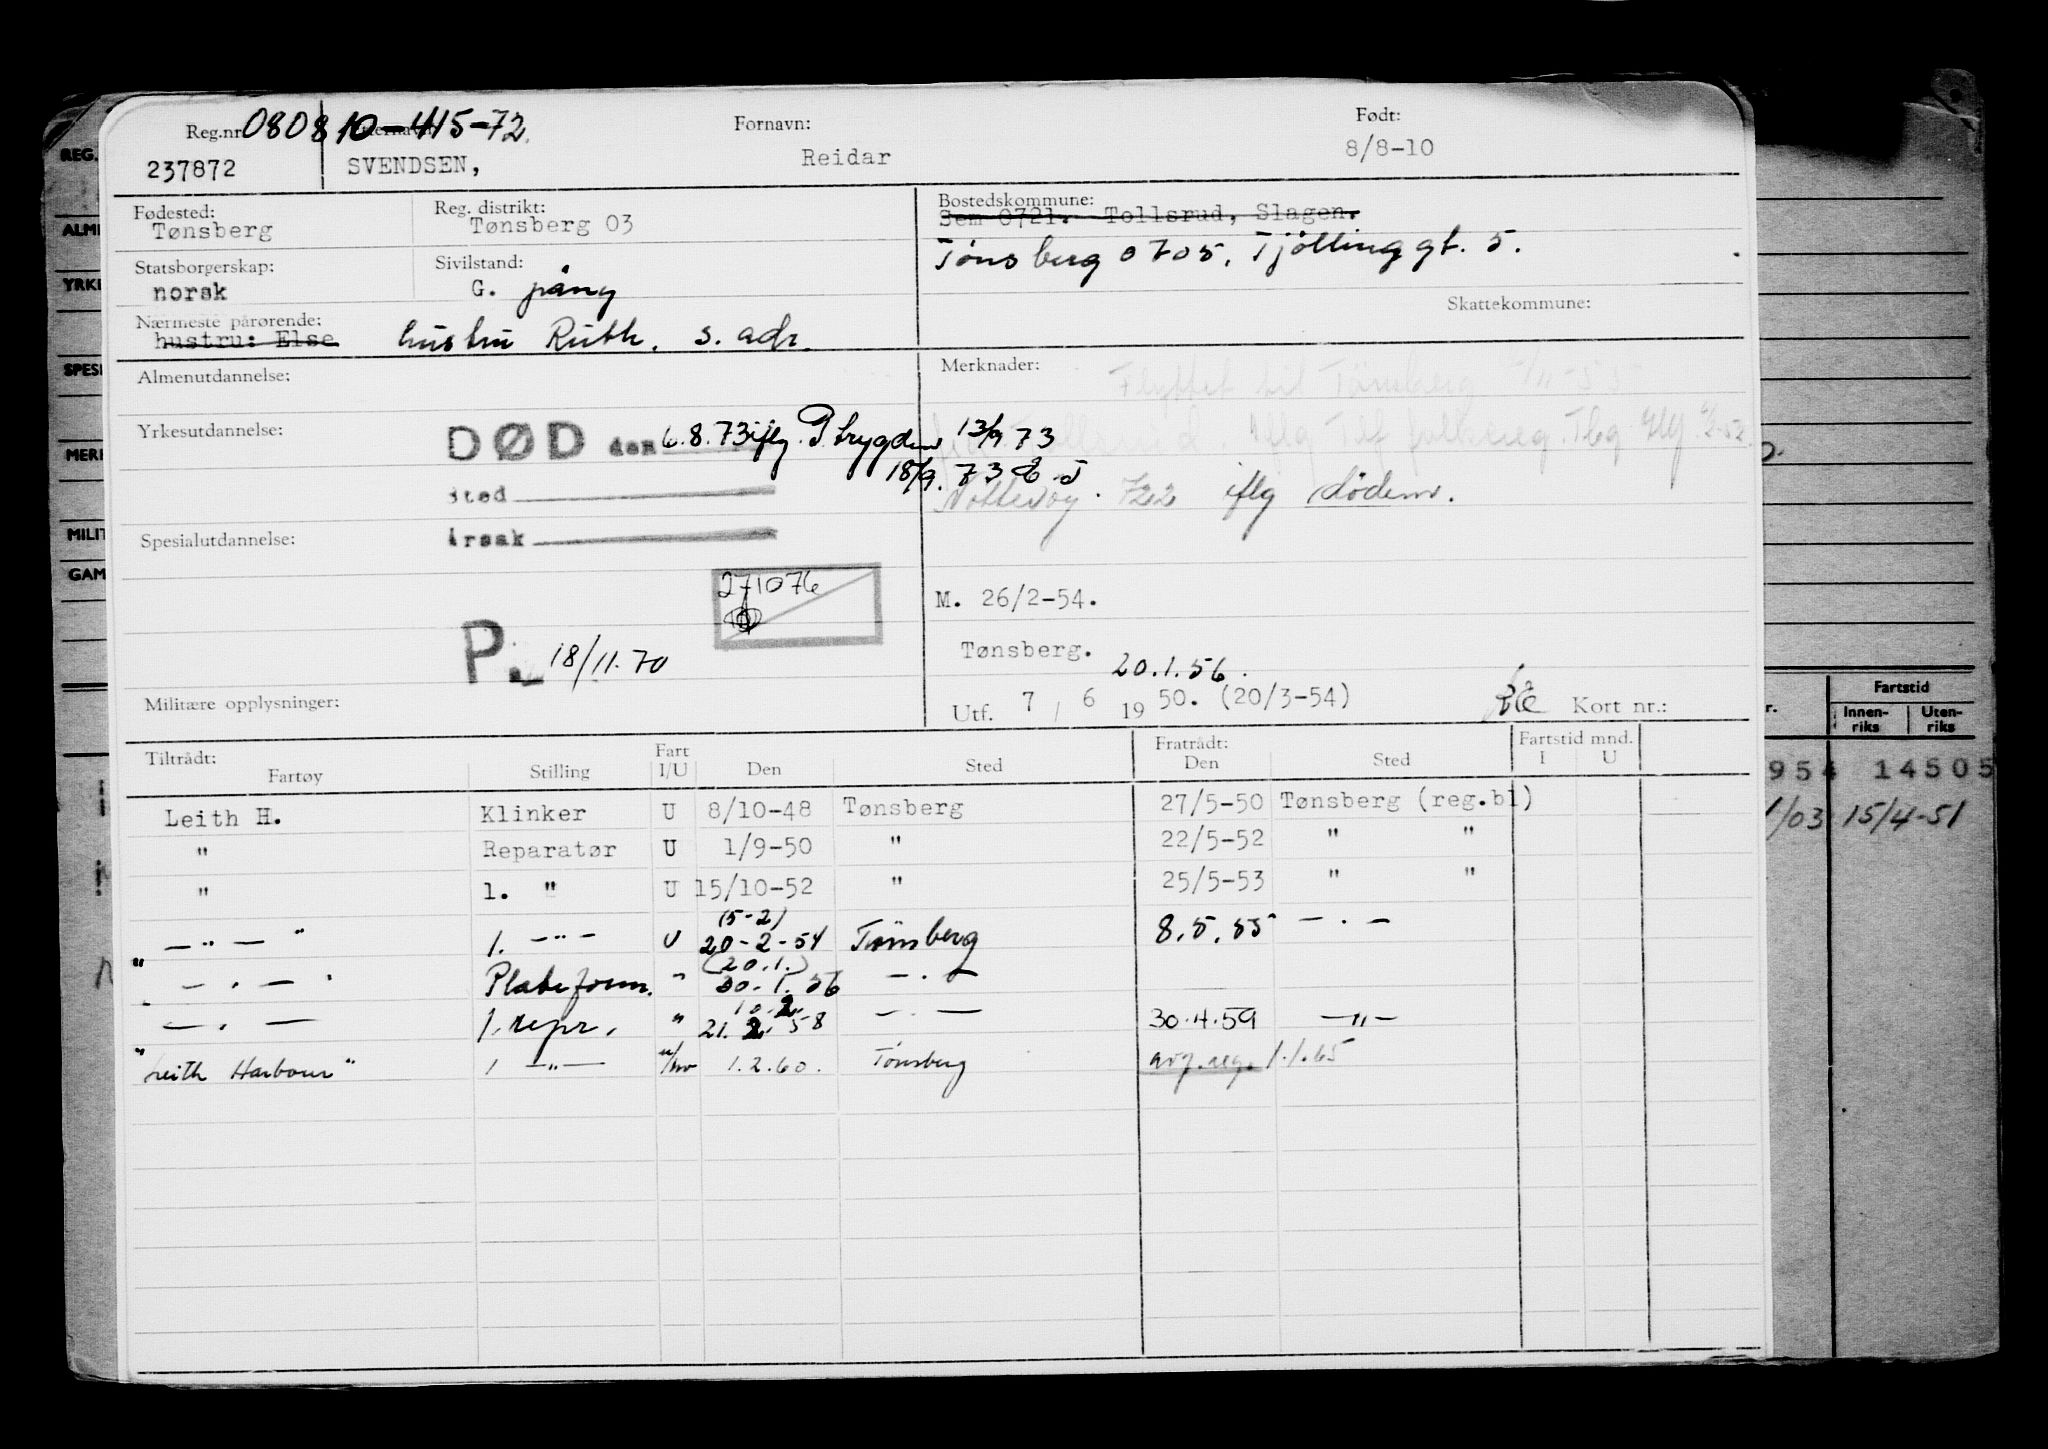 Reg.nr. 080810-415-72. Fornavn: Født:
237872 SVENDSEN, Reidar 8/8-10
Fødested: Reg. distrikt: Bostedskommune:
Tønsberg Tønsberg 03 Sem 0721. Tollsrud, Slagen.
Tønsberg 0705. Tjøllinggt. 5.
Statsborgerskap: Sivilstand:
norsk G. gang
Skattekommune:
Nærmeste pårørende:
hustru: Else hustru Ruth. s. adr.
Almenutdannelse: Merknader:
Flyttet til Tønsberg
Yrkesutdannelse: DØD den 6.8.73 iflg. P. trygden 13/9 73
18/9. 73
sted
Nøtterøy. 722 iflg dødem.
Spesialutdannelse: årsak
271076
M. 26/2-54.
P. 18/11.70
Tønsberg. 20.1.56.
Militære opplysninger: Utf. 7 / 6 19 50. (20/3-54) Kort nr.:
Tiltrådt: Fart Fratrådt: Fartstid mnd.
Fartøy Stilling I/U Den Sted Den Sted I U
Leith H. Klinker U 8/10-48 Tønsberg 27/5-50 Tønsberg (reg.bl)
" Reparatør U 1/9-50 " 22/5-52 " "
" 1. " U 15/10-52 " 25/5-53 " "
(5-2)
— " — " 1. — " — U 20-2-54 Tønsberg 8.5.55 — . —
(20.1.)
" — . — " Plateform. " 30.1.56 — . —
10.2.
— . — 1. repr. " 21.2.58 — . — 30.4.59 — " —
"Leith Harbour" 1 — " — 1.2.60. Tønsberg avg. reg. 1.1.65
REG.
ALM
YRK
SPES
MER
MILIT
GAM
Fartstid
Innen-
riks
Uten-
riks
954 14505
1/03 15/4-51